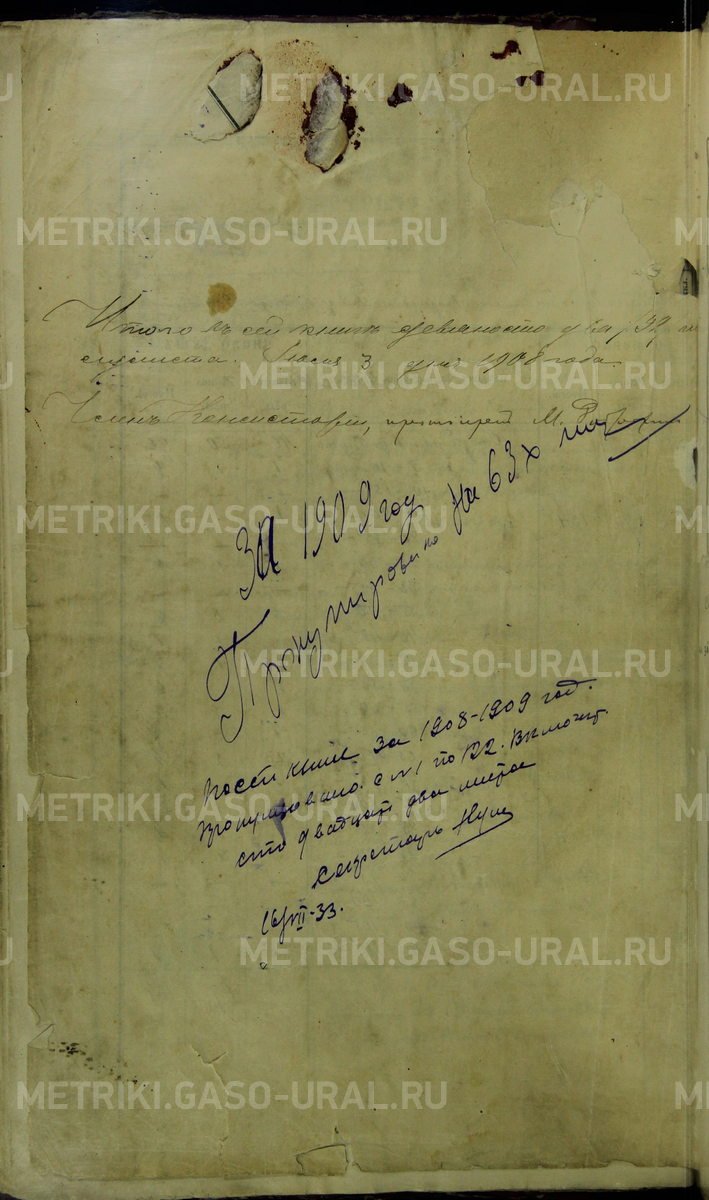 Итого въ сей книгѣ девяносто два /92/
листа. Июля 3 дня 1908 года.
Членъ Консисторіи, протоіерей М.
За 1909 год
Пронумировано на 63х
книге за 1908-1909 год.
с №1 по 122. Включит.
сто двадцать два листа
Секретарь
16/VII-33.
METRIKI.GASO-URAL.RU
METRIKI.GASO-URAL.RU
METRIKI.GASO-URAL.RU
METRIKI.GASO-URAL.RU
METRIKI.GASO-URAL.RU
METRIKI.GASO-URAL.RU
METRIKI.GASO-URAL.RU
METRIKI.GASO-URAL.RU